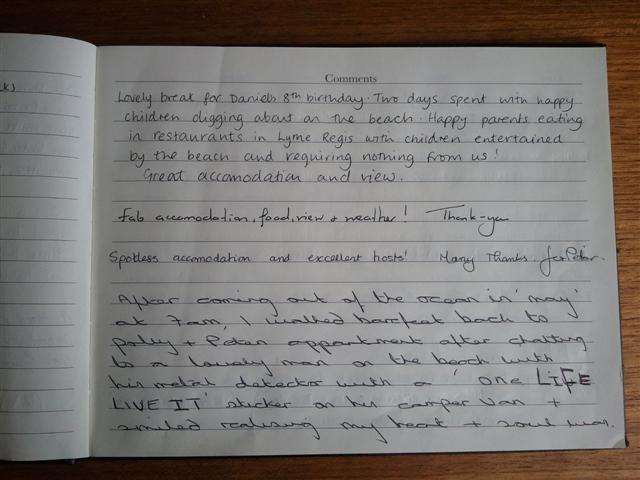 k)
Comments
Lovely break for Daniel's 8th birthday. Two days spent with happy
children digging about on the beach. Happy parents eating
in restaurants in Lyme Regis with children entertained
by the beach and requiring nothing from us!
Great accomodation and view.
Fab accomodation, food, view + weather! Thank-you
Spotless accomodation and excellent hosts! Many Thanks.
After coming out of the ocean in 'may'
at 7am, I walked barefeet back to
Polly + Peter appartment after chatting
to a lovely man on the beach with
his metal detector with a 'ONE LIFE
LIVE IT' sticker on his camper van +
smiled realising my heart + soul was.